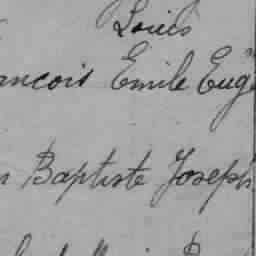 Louis
ancois Emile Eugè
n Baptiste Joseph